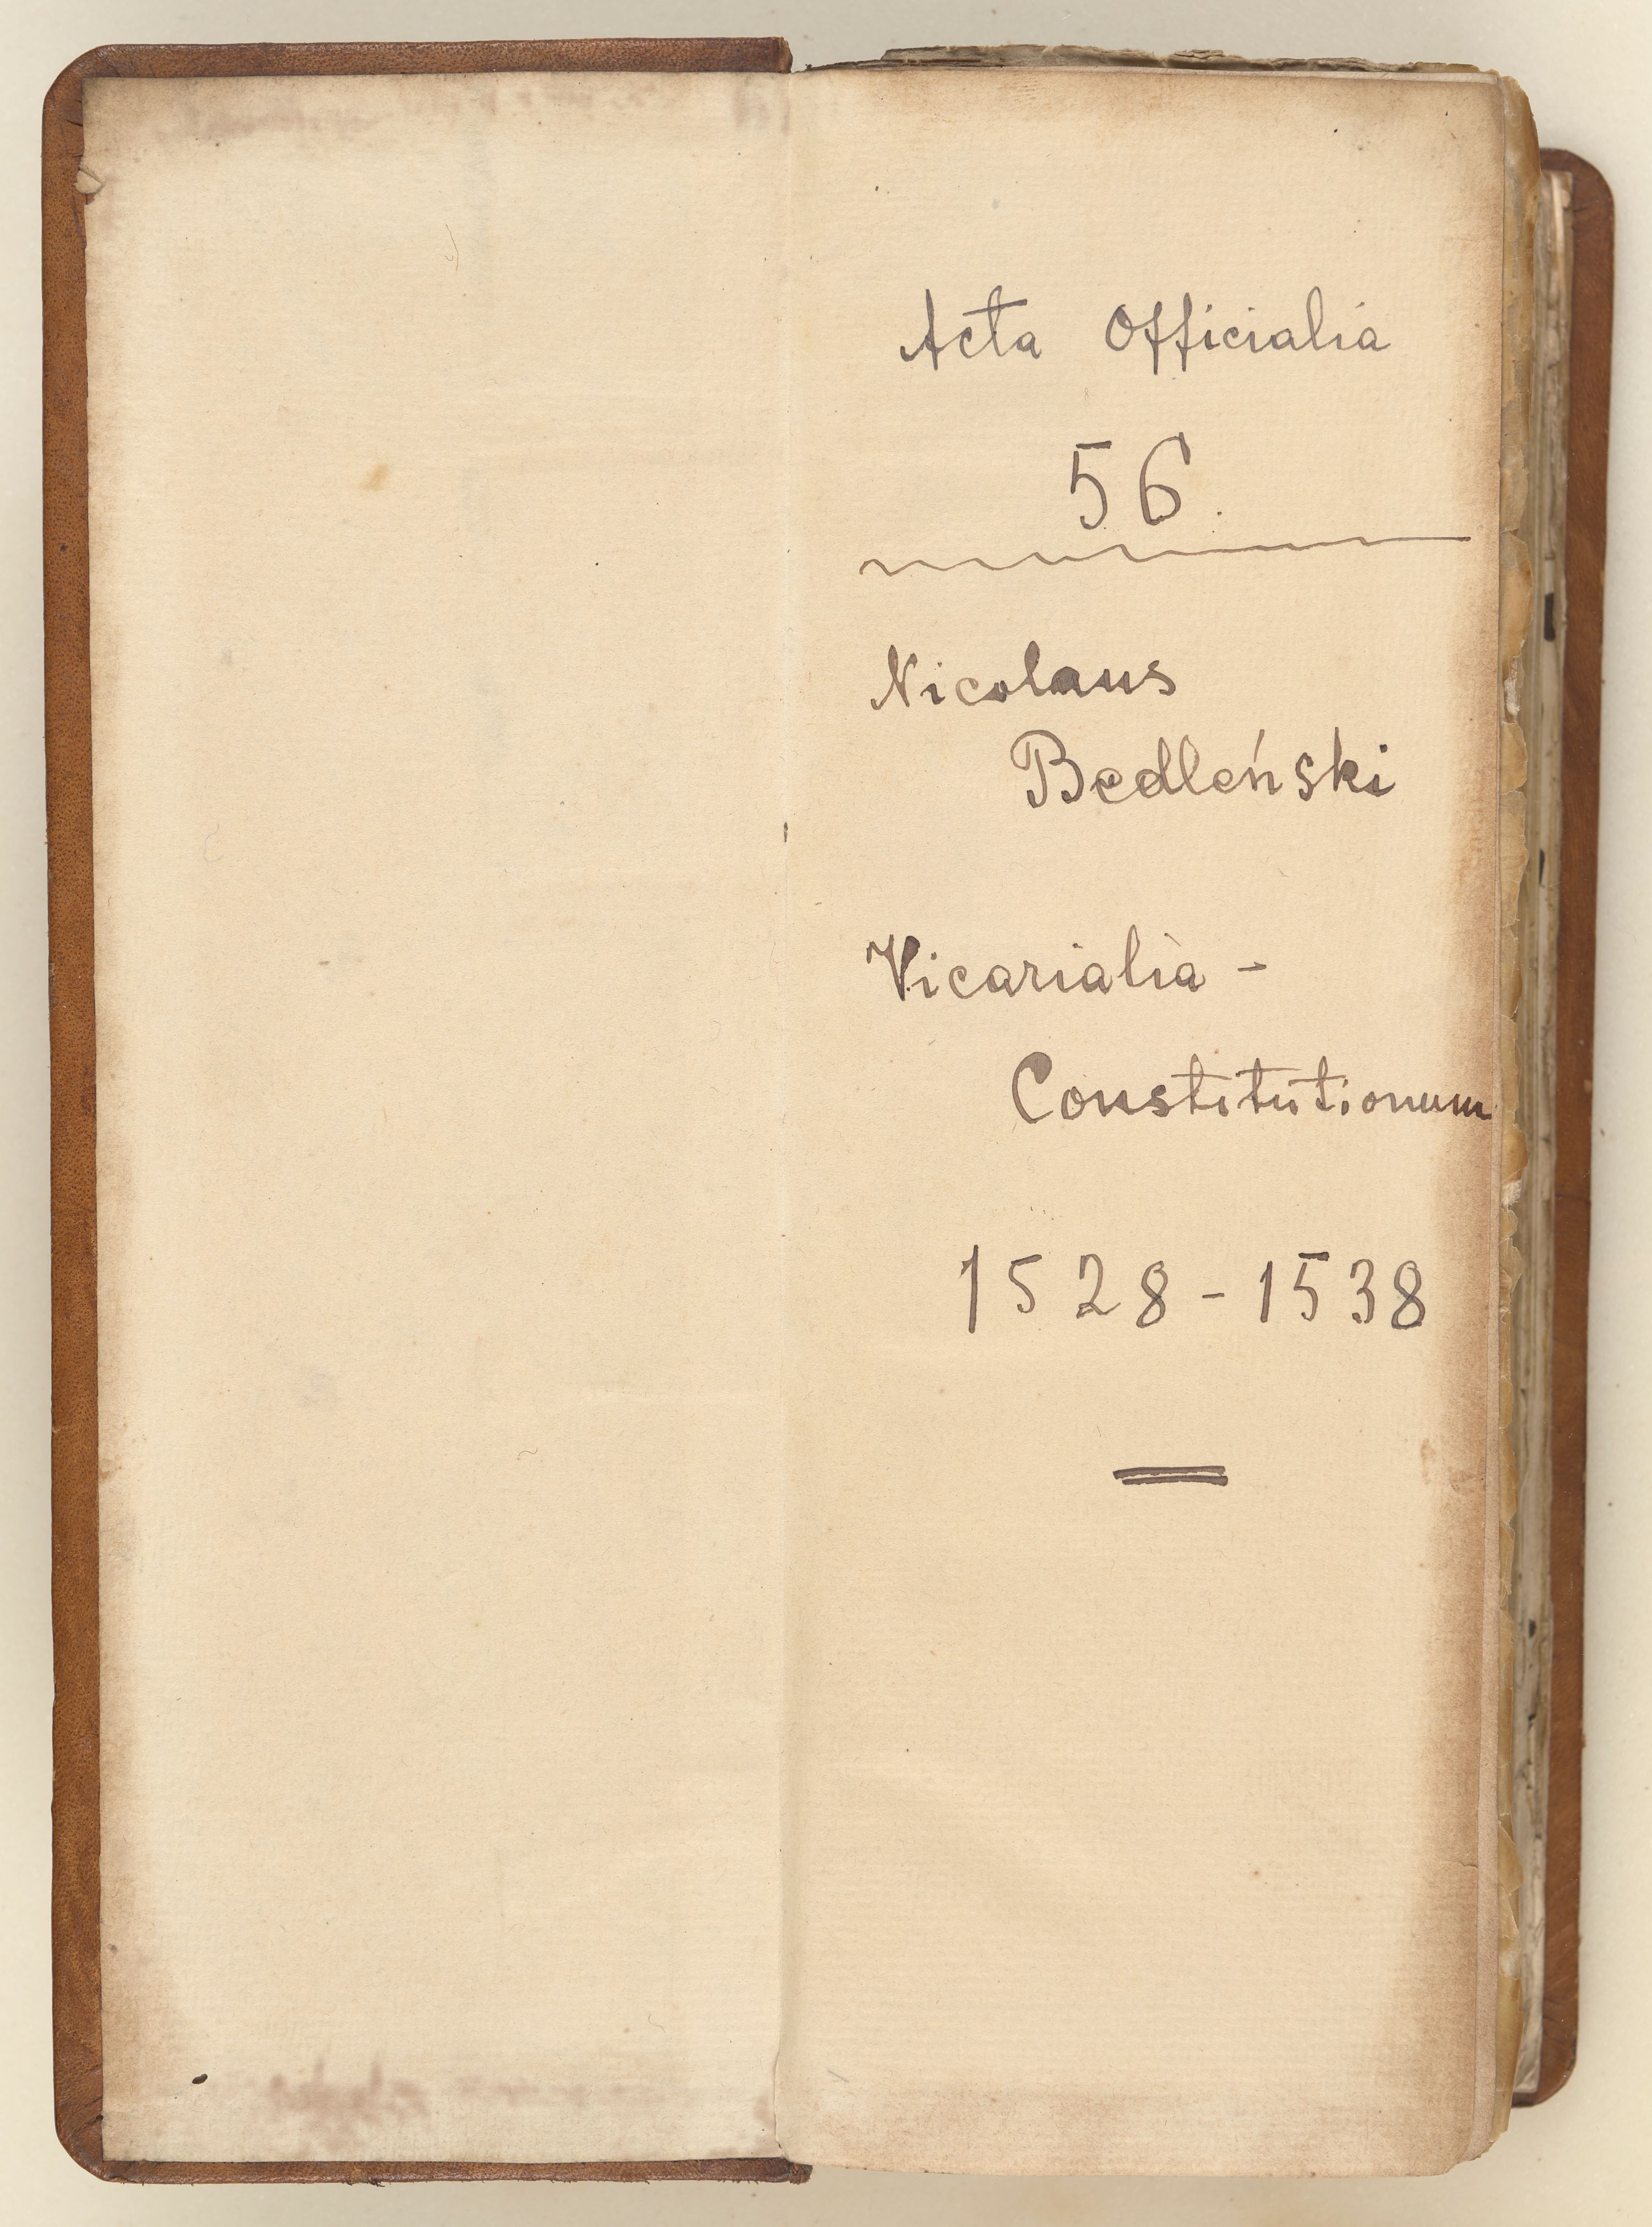 Acta Officialia
56.
Nicolaus
Bedleński
Vicarialia -
Constitutionum
1528-1538